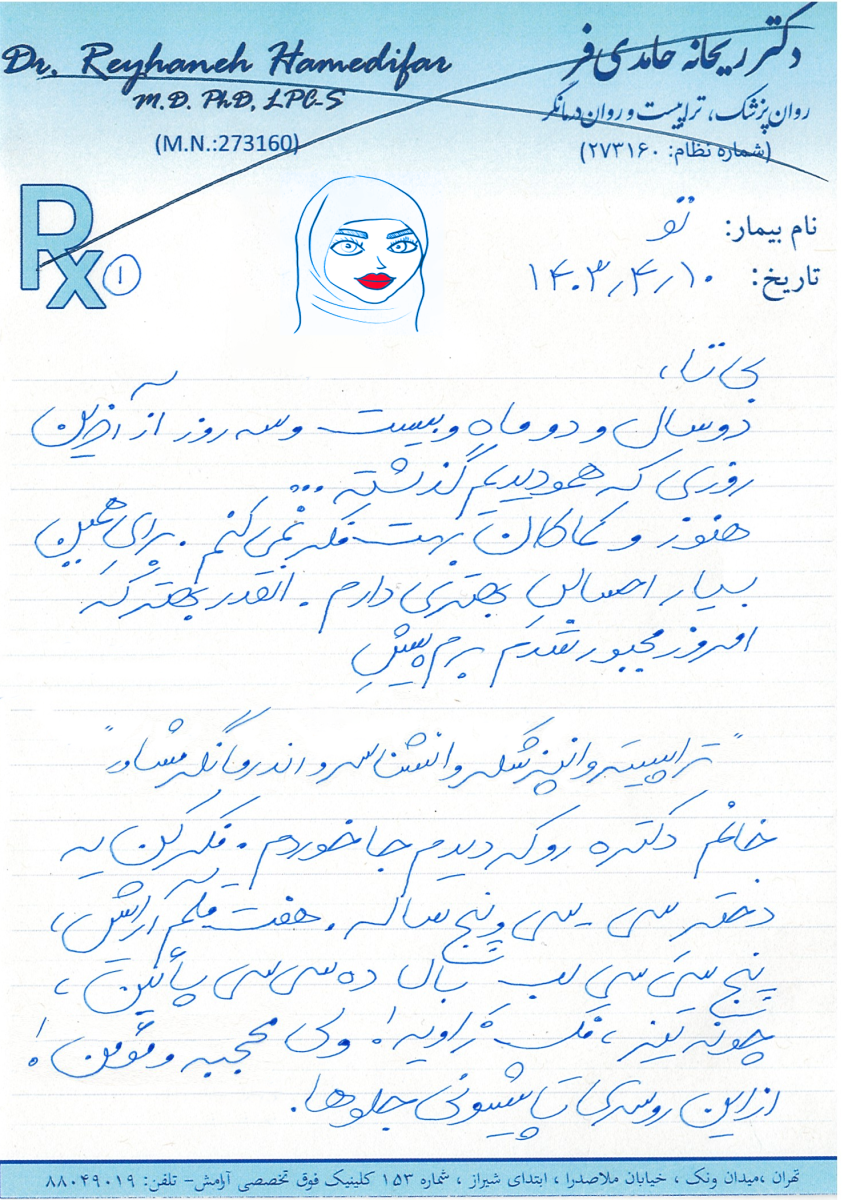 Dr. Reyhaneh Hamedifar
M.D. PhD, LPC-S
(M.N.:273160)
دکتر ریحانه حامدی فر
روان پزشک، تراپیست و روان درمانگر
(شماره نظام: ۲۷۳۱۶۰)
Rx
۱
نام بیمار: تو
تاریخ: ۱۴۰۳٫۴٫۱۰
دو سال و دو ماه و بیست و سه روز از آخرین
روزی که همو دیدیم گذشته ...
هنوز و کماکان بهت فکر نمی کنم. برای همین
بسیار احساس بهتری دارم. انقدر بهتر که
امروز مجبور شدم برم پیشِ
"تراپیست و
خانم دکتره رو که دیدم جا خوردم. فکر کن یه
دختر سی - سی و پنج ساله. هفت قلم آرایش،
پنج سی سی لب بالا ده سی سی پائین،
چونه تیز، فک زاویه! ولی محجبه و مؤمن!
از این روسری تا پیشونی جلوها.
تهران ،میدان ونک ، خیابان ملاصدرا ، ابتدای شیراز ، شماره ۱۵۳ کلینیک فوق تخصصی آرامش- تلفن: ۸۸۰۴۹۰۱۹